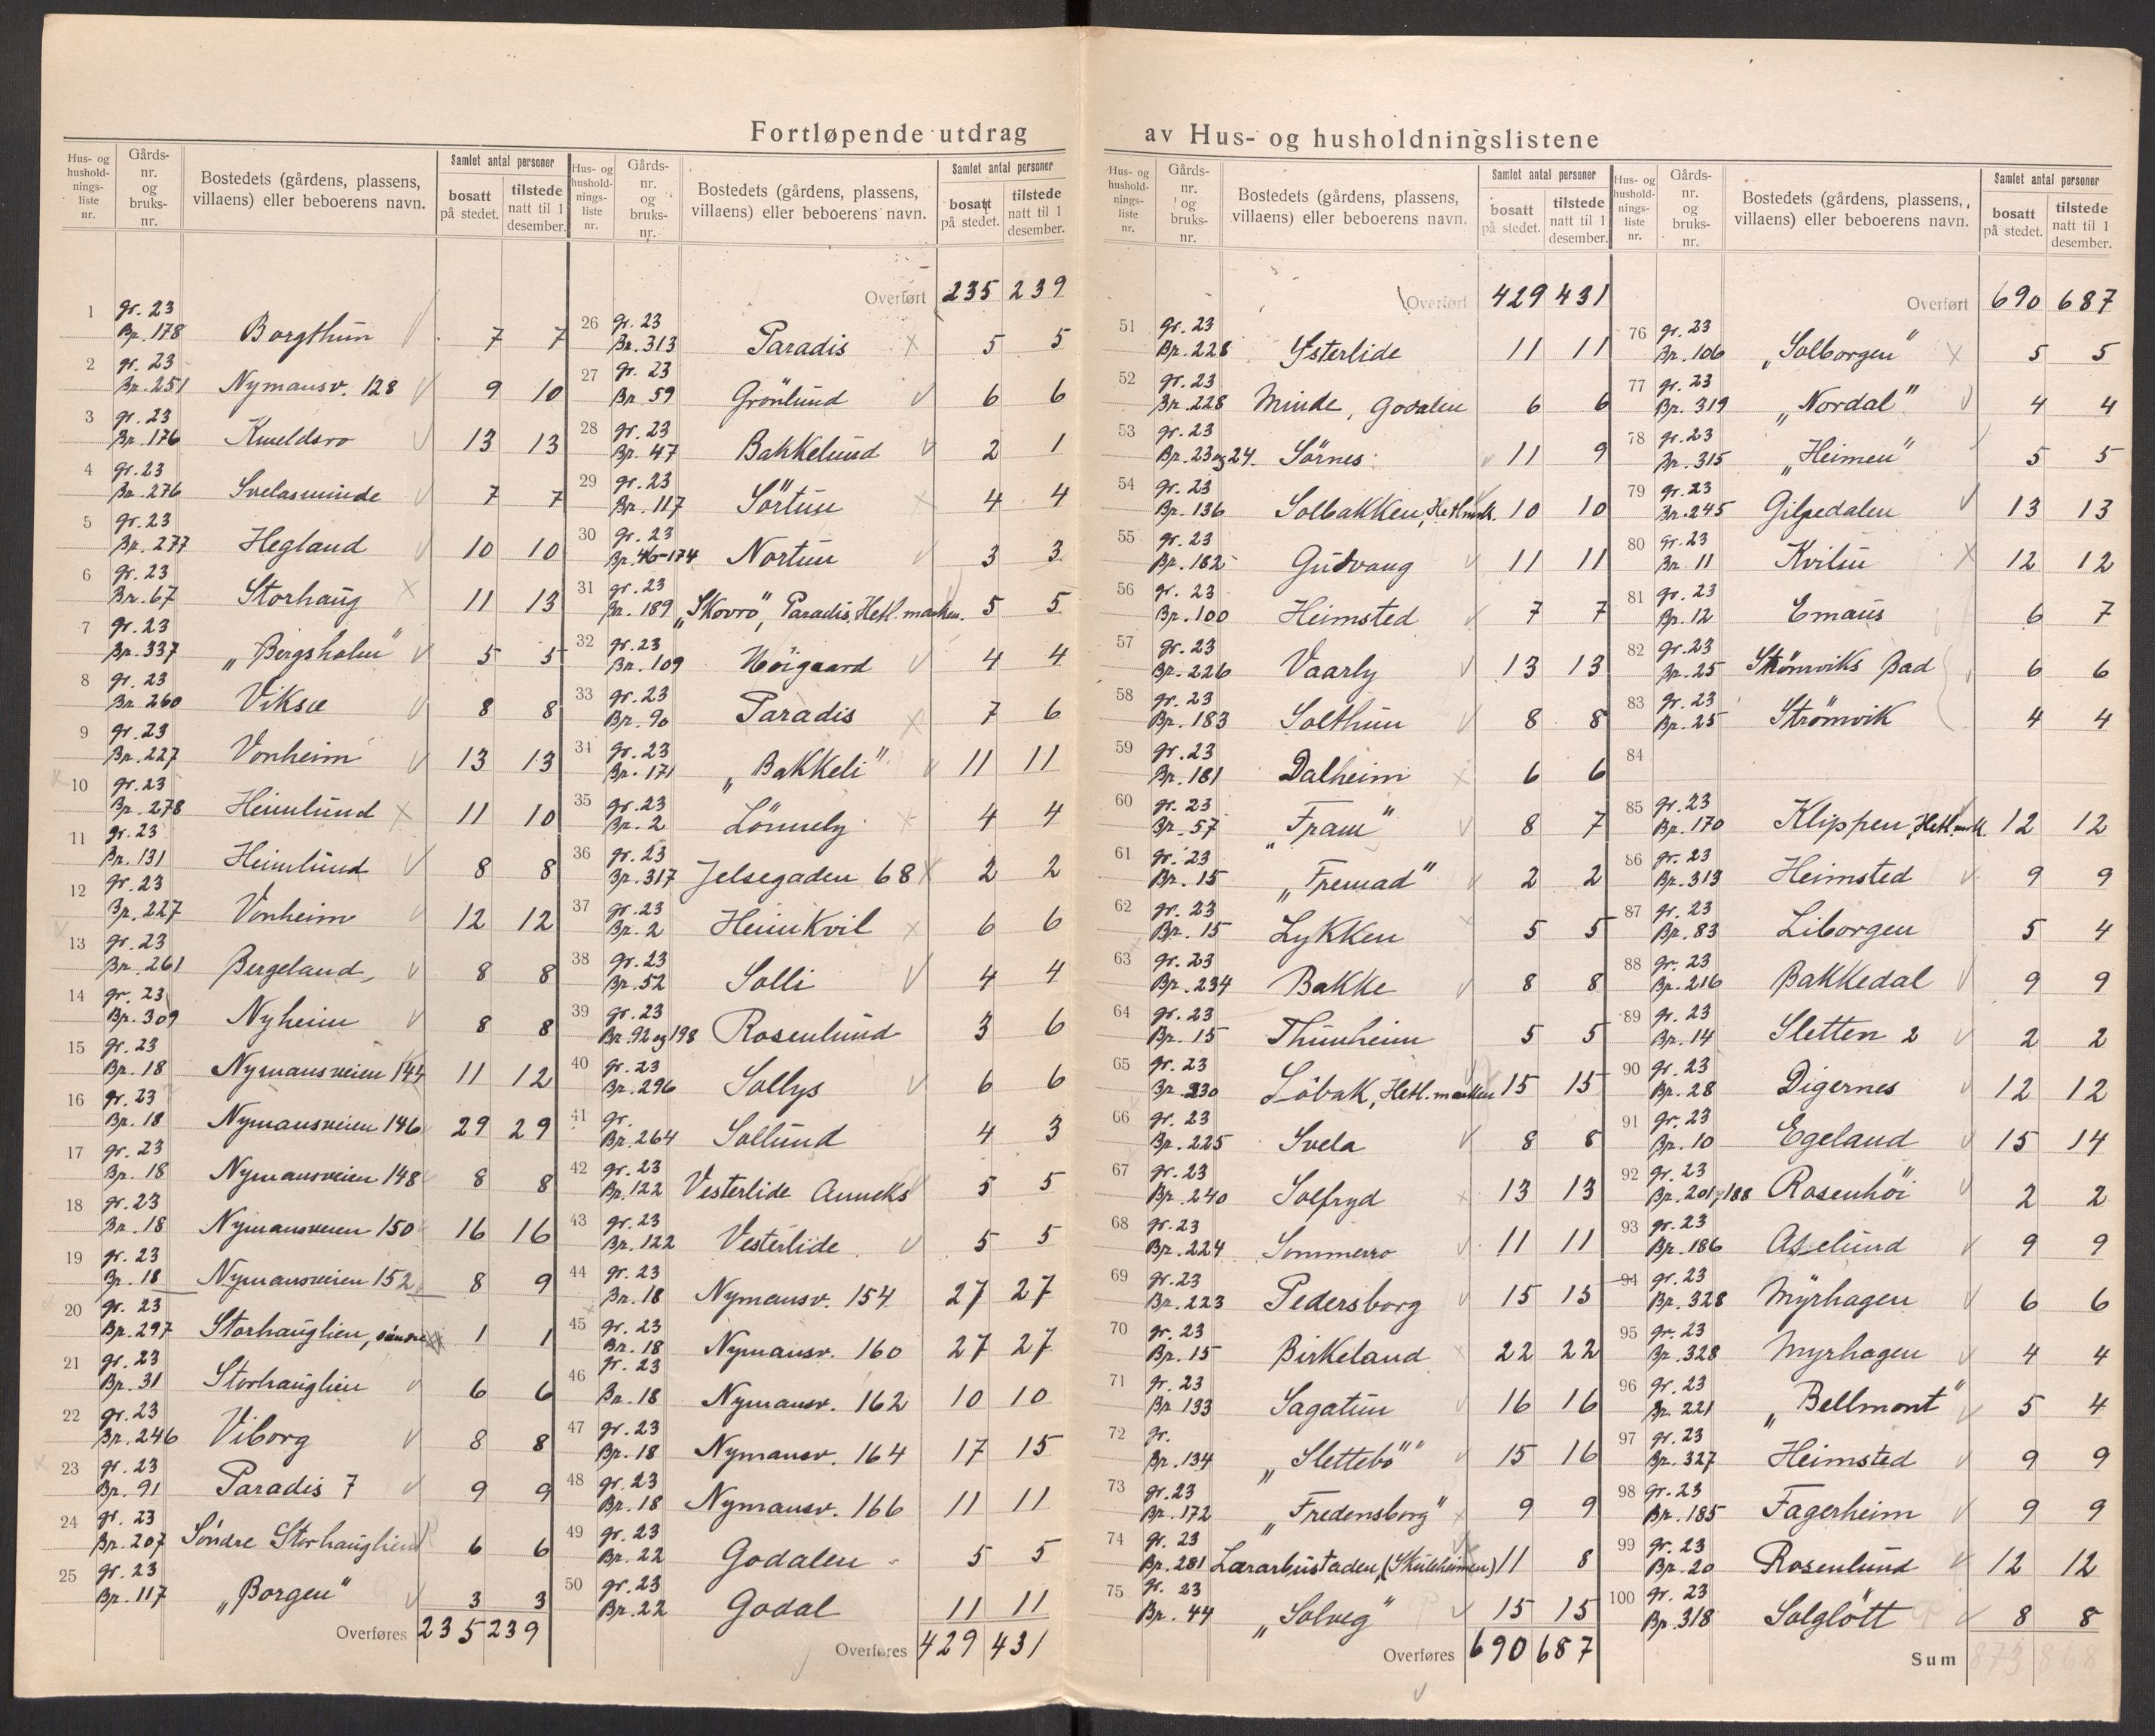 Fortløpende utdrag av Hus- og husholdningslistene
Hus- og hushold-nings-liste nr. | Gårds-nr. og bruks-nr. | Bostedets (gårdens, plassens, villaens) eller beboerens navn. | Samlet antal personer | bosatt på stedet. | tilstede natt til 1 desember.
1 gr. 23 Br. 178 Borgthun 7 7
2 gr. 23 Br. 251 Nymansv. 128 9 10
3 gr. 23 Br. 176 Kveldsro 13 13
4 gr. 23 Br. 276 Svelasminde 7 7
5 gr. 23 Br. 277 Hegland 10 10
6 gr. 23 Br. 67 Storhaug 11 13
7 gr. 23 Br. 337 „Bergsholm" 5 5
8 gr. 23 Br. 260 Viksæ 8 8
9 gr. 23 Br. 227 Vonheim 13 13
10 gr. 23 Br. 278 Heimlund 11 10
11 gr. 23 Br. 131 Heimlund 8 8
12 gr. 23 Br. 227 Vonheim 12 12
13 gr. 23 Br. 261 Bergeland 8 8
14 gr. 23 Br. 309 Nyheim 8 8
15 gr. 23 Br. 18 Nymansveien 144 11 12
16 gr. 23 Br. 18 Nymansveien 146 29 29
17 gr. 23 Br. 18 Nymansveien 148 8 8
18 gr. 23 Br. 18 Nymansveien 150 16 16
19 gr. 23 Br. 18 Nymansveien 152 8 9
20 gr. 23 Br. 297 Storhauglien, søndre 1 1
21 gr. 23 Br. 31 Storhauglien 6 6
22 gr. 23 Br. 246 Viborg 8 8
23 gr. 23 Br. 91 Paradis 7 9 9
24 gr. 23 Br. 207 Söndre Storhauglien 6 6
25 gr. 23 Br. 117 „Borgen" 3 3
Overføres 235 239
Hus- og hushold-nings-liste nr. | Gårds-nr. og bruks-nr. | Bostedets (gårdens, plassens, villaens) eller beboerens navn. | Samlet antal personer | bosatt på stedet. | tilstede natt til 1 desember.
Overført 235 239
26 gr. 23 Br. 313 Paradis 5 5
27 gr. 23 Br. 59 Grönlund 6 6
28 gr. 23 Br. 47 Bakkelund 2 1
29 gr. 23 Br. 117 Sörtun 4 4
30 gr. 23 Br. 46-174 Nortun 3 3
31 gr. 23 Br. 189 „Skovro", Paradis, Hetl. marken. 5 5
32 gr. 23 Br. 109 Höigaard 4 4
33 gr. 23 Br. 90 Paradis 7 6
34 gr. 23 Br. 171 „Bakkeli" 11 11
35 gr. 23 Br. 2 Lønnely 4 4
36 gr. 23 Br. 317 Jelsegaden 68 2 2
37 gr. 23 Br. 2 Heimkvil 6 6
38 gr. 23 Br. 52 Solli 4 4
39 gr. 23 Br. 92 og 198 Rosenlund 3 6
40 gr. 23 Br. 296 Sollys 6 6
41 gr. Br. 264 Sollund 4 3
42 gr. 23 Br. 122 Vesterlide Anneks 5 5
43 gr. 23 Br. 122 Vesterlide 5 5
44 gr. 23 Br. 18 Nymansv. 154 27 27
45 gr. 23 Br. 18 Nymansv. 160 27 27
46 gr. 23 Br. 18 Nymansv. 162 10 10
47 gr. 23 Br. 18 Nymansv. 164 17 15
48 gr. 23 Br. 18 Nymansv. 166 11 11
49 gr. 23 Br. 22 Godalen 5 5
50 gr. 23 Br. 22 Godal 11 11
Overføres 429 431
Hus- og hushold-nings-liste nr. | Gårds-nr. og bruks-nr. | Bostedets (gårdens, plassens, villaens) eller beboerens navn. | Samlet antal personer | bosatt på stedet. | tilstede natt til 1 desember.
Overført 429 431
51 gr. 23 Br. 228 Ysterlide 11 11
52 gr. 23 Br. 228 Minde, Godalen 6 6
53 gr. 23 Br. 23 og 24. Sörnes 11 9
54 gr. 23 Br. 136 Solbakken, Hetlmrk. 10 10
55 gr. 23 Br. 182 Gudvang 11 11
56 gr. 23 Br. 100 Heimsted 7 7
57 gr. 23 Br. 226 Vaarly 13 13
58 gr. 23 Br. 183 Solthun 8 8
59 gr. 23 Br. 181 Dalheim 6 6
60 gr. 23 Br. 57 „Fram" 8 7
61 gr. 23 Br. 15 „Fremad" 2 2
62 gr. 23 Br. 15 Lykken 5 5
63 gr. 23 Br. 234 Bakke 8 8
64 gr. 23 Br. 15 Thunheim 5 5
65 gr. 23 Br. 230 Löbak, Hetl. marken 15 15
66 gr. 23 Br. 225 Svela 8 8
67 gr. 23 Br. 240 Solfryd 13 13
68 gr. 23 Br. 224 Sommerro 11 11
69 gr. 23 Br. 223 Pedersborg 15 15
70 gr. 23 Br. 15 Birkeland 22 22
71 gr. 23 Br. 133 Sagatun 16 16
72 gr. Br. 134 „Slettebö" 15 16
73 gr. 23 Br. 172 „Fredensborg" 9 9
74 gr. 23 Br. 281 Lærarbustaden, (Skuleheimen) 11 8
75 gr. 23 Br. 44 „Solveg" 15 15
Overføres 690 687
Hus- og hushold-nings-liste nr. | Gårds-nr. og bruks-nr. | Bostedets (gårdens, plassens, villaens) eller beboerens navn. | Samlet antal personer | bosatt på stedet. | tilstede natt til 1 desember.
Overført 690 687
76 gr. 23 Br. 106 „Solborgen" 5 5
77 gr. 23 Br. 319 „Nordal" 4 4
78 gr. 23 Br. 315 „Heimen" 5 5
79 gr. 23 Br. 245 Gilpedalen 13 13
80 gr. 23 Br. 11 Kvilin 12 12
81 gr. 23 Br. 12 Emaus 6 7
82 gr. 23 Br. 25 Strömviks Bad 6 6
83 gr. 23 Br. 25 Strömvik 4 4
84
85 gr. 23 Br. 170 Klippen, Hetl.mrk. 12 12
86 gr. 23 Br. 313 Heimsted 9 9
87 gr. 23 Br. 83 Liborgen 5 4
88 gr. 23 Br. 216 Bakkedal 9 9
89 gr. 23 Br. 14 Sletten 2 2 2
90 gr. 23 Br. 28 Digernes 12 12
91 gr. 23 Br. 10 Egeland 15 14
92 gr. 23 Br. 201, 188 Rosenhöi 2 2
93 gr. 23 Br. 186 Aselund 9 9
94 gr. 23 Br. 328 Myrhagen 6 6
95 gr. 23 Br. 328 Myrhagen 4 4
96 gr. 23 Br. 221 „Bellmont" 5 4
97 gr. 23 Br. 327 Heimsted 9 9
98 gr. 23 Br. 185 Fagerheim 9 9
99 gr. 23 Br. 20 Rosenlund 12 12
100 gr. 23 Br. 318 Solglött 8 8
Sum 873 868